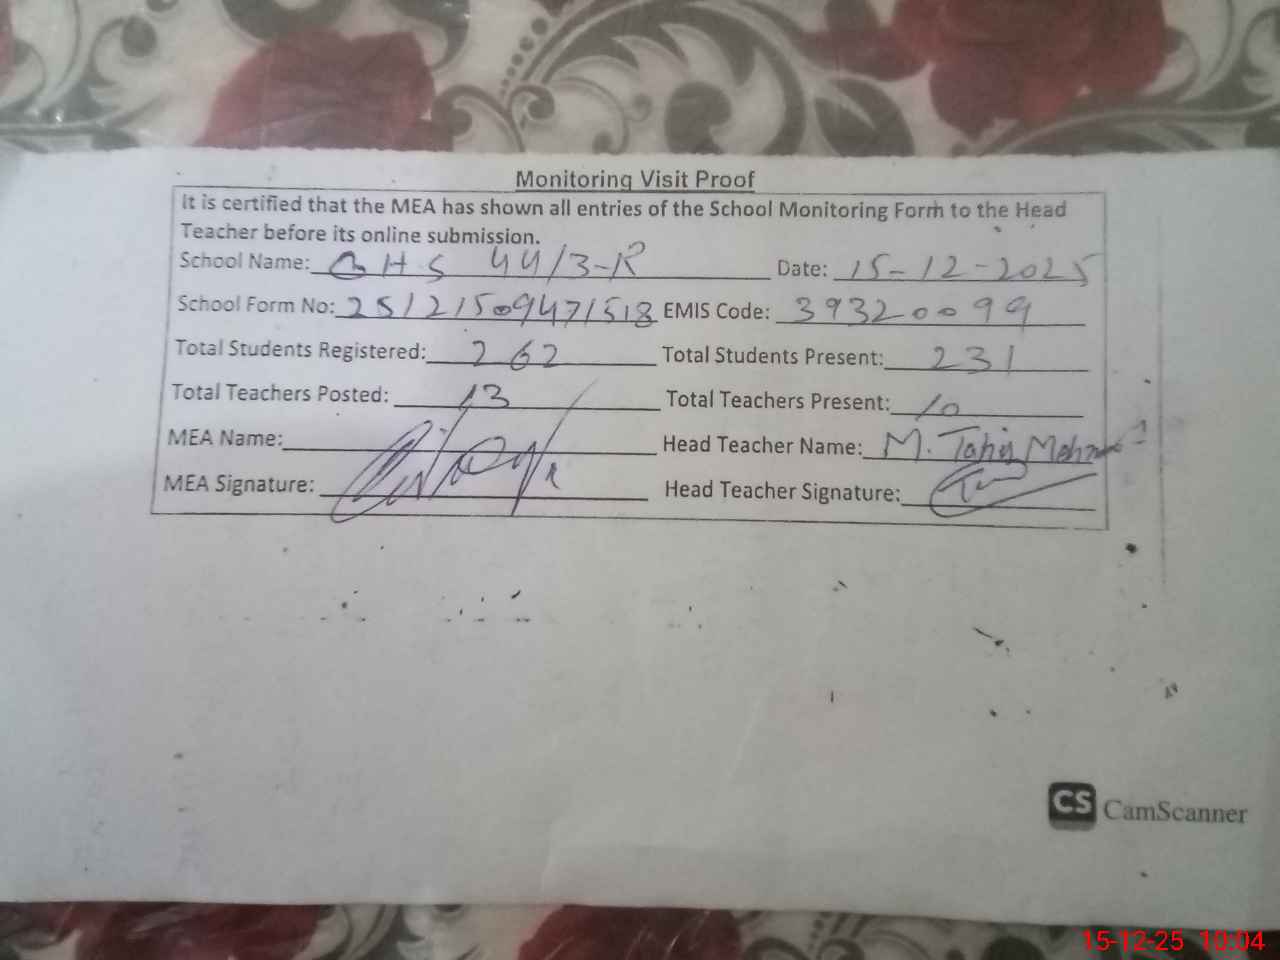 Monitoring Visit Proof
It is certified that the MEA has shown all entries of the School Monitoring Form to the Head
Teacher before its online submission.
School Name: GHS 44/3-R Date: 15-12-2025
School Form No: 25121509471518 EMIS Code: 39320099
Total Students Registered: 262 Total Students Present: 231
Total Teachers Posted: 13 Total Teachers Present: 10
MEA Name: Head Teacher Name: M. Tahir
MEA Signature: Head Teacher Signature:
CS CamScanner
15-12-25 10:04